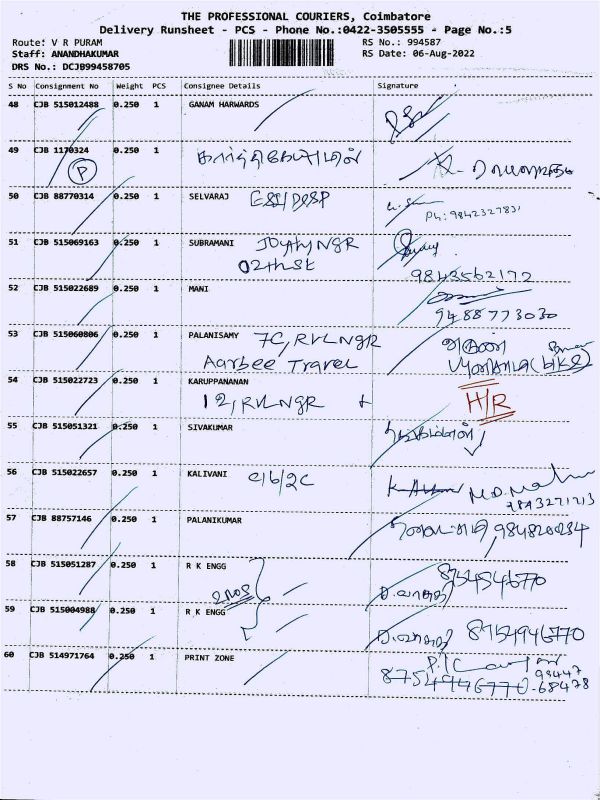 THE PROFESSIONAL COURIERS, Coimbatore
Delivery Runsheet - PCS - Phone No.:0422-3505555 - Page No.:5
Route: V R PURAM RS No.: 994587
Staff: ANANDHAKUMAR RS Date: 06-Aug-2022
DRS No.: DCJB99458705
S No Consignment No Weight PCS Consignee Details Signature
48 CJB 515012488 0.250 1 GANAM HARWARDS
49 CJB 1170324 0.250 1 கார்த்திகேயன்
P
50 CJB 88770314 0.250 1 SELVARAJ ESI/DESP
Ph: 9842327831
51 CJB 515069163 0.250 1 SUBRAMANI Jothy NGR
02th St 9843562172
52 CJB 515022689 0.250 1 MANI
9488773030
53 CJB 515060806 0.250 1 PALANISAMY 7C, RVL NGR
Aarbee Travel
54 CJB 515022723 0.250 1 KARUPPANANAN
12, RVL NGR H/R
55 CJB 515051321 0.250 1 SIVAKUMAR
56 CJB 515022657 0.250 1 KALIVANI C/6/2C
9843271213
57 CJB 88757146 0.250 1 PALANIKUMAR
58 CJB 515051287 0.250 1 R K ENGG
2 NOS
59 CJB 515004988 0.250 1 R K ENGG
8754946770
60 CJB 514971764 0.250 1 PRINT ZONE
98447
8754946770 -68478